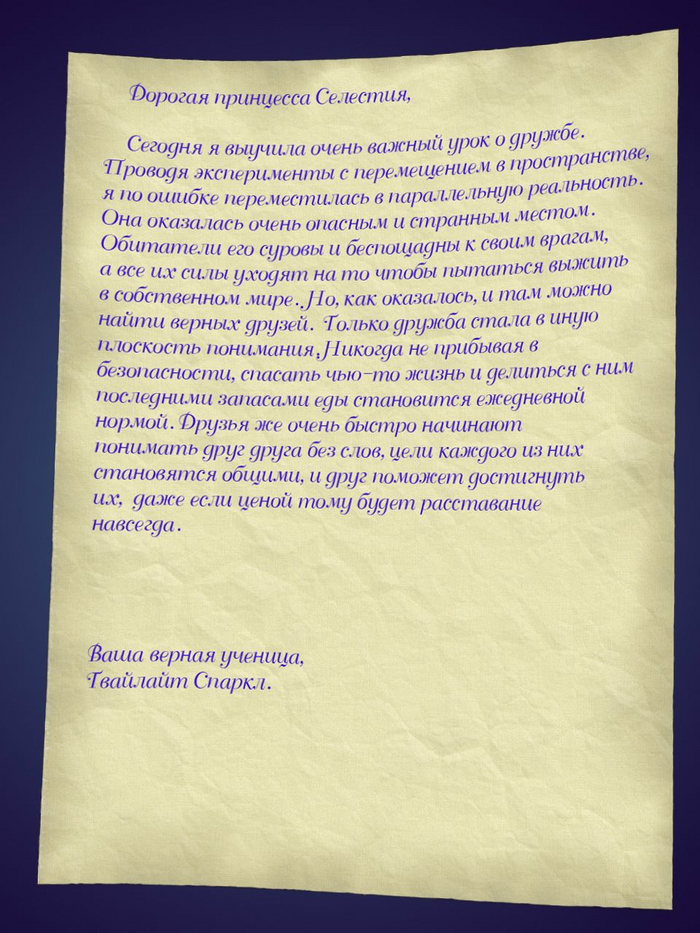 Дорогая принцесса Селестия,
Сегодня я выучила очень важный урок о дружбе.
Проводя эксперименты с перемещением в пространстве,
я по ошибке переместилась в параллельную реальность.
Она оказалась очень опасным и странным местом.
Обитатели его суровы и беспощадны к своим врагам,
а все их силы уходят на то чтобы пытаться выжить
в собственном мире. Но, как оказалось, и там можно
найти верных друзей. Только дружба стала в иную
плоскость понимания, Никогда не прибывая в
безопасности, спасать чью-то жизнь и делиться с ним
последними запасами еды становится ежедневной
нормой. Друзья же очень быстро начинают
понимать друг друга без слов, цели каждого из них
становятся общими, и друг поможет достигнуть
их, даже если ценой тому будет расставание
навсегда.
Ваша верная ученица,
Твайлайт Спаркл.